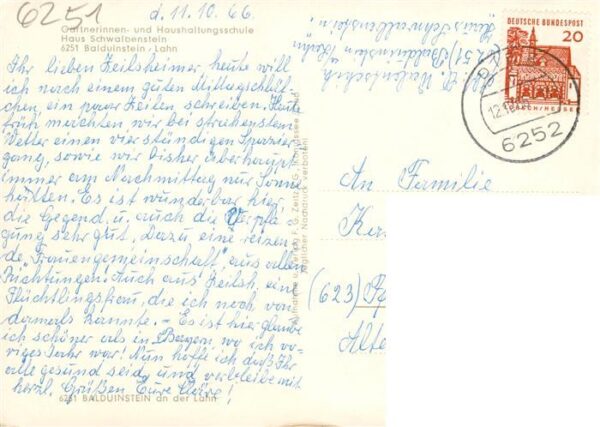 6251
d. 11.10.66
Gärtnerinnen- und Haushaltungsschule
Haus Schwalbenstein
6251 Balduinstein / Lahn
Ihr lieben Zeilsheimer heute will
ich nach einem guten Mittagschläf-
chen, ein paar Zeilen schreiben. Heute
früh machten wir bei strahlendem
Wetter einen vierstündigen Spazier-
gang, sowie wir bisher überhaupt
immer am Nachmittag nur Sonne
hatten. Es ist wunderbar hier,
die Gegend u. auch die Verpfle-
gung sehr gut. Dazu eine reizen-
de "Frauengemeinschaft" aus allen
Richtungen. Auch aus Zeilsh. eine
Flüchtlingsfrau, die ich noch von
damals kannte. - Es ist hier glaube
ich schöner als in Bayern, wo ich vo-
riges Jahr war! Nun hoffe ich daß Ihr
alle gesund seid, und verbleibe mit
herzl. Grüßen Eure Claire!
6251 BALDUINSTEIN an der Lahn
(6251) Balduinstein
Haus Schwalbenstein
DEUTSCHE BUNDESPOST
20
LORSCH/HESSEN
12.10.
6252
An Familie
(623)